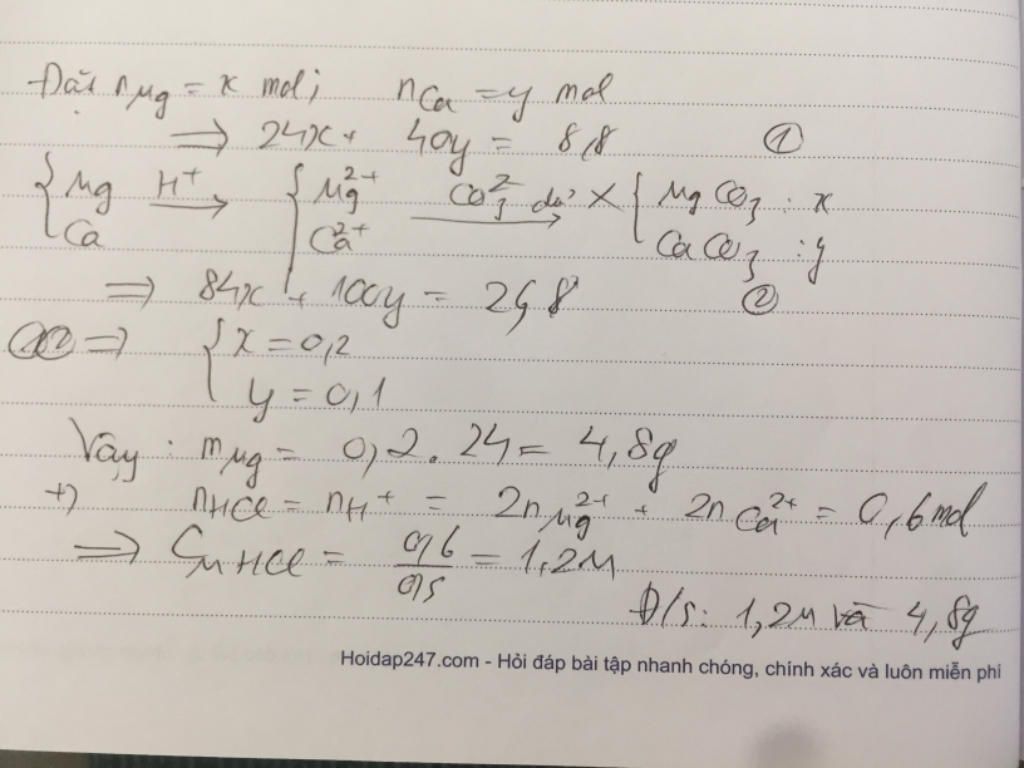 Đặt nMg = x mol; nCa = y mol
=> 24x + 40y = 8,8 ①
{ Mg H+ → { Mg2+ CO32- dư → X { MgCO3 : x
Ca Ca2+ CaCO3 : y
=> 84x + 100y = 26,8 ②
①② => { x = 0,2
y = 0,1
Vậy : mMg = 0,2.24 = 4,8g
+) nHCl = nH+ = 2nMg2+ + 2nCa2+ = 0,6mol
=> CM HCl = 0,6/0,5 = 1,2M
Đ/s: 1,2M và 4,8g
Hoidap247.com - Hỏi đáp bài tập nhanh chóng, chính xác và luôn miễn phí